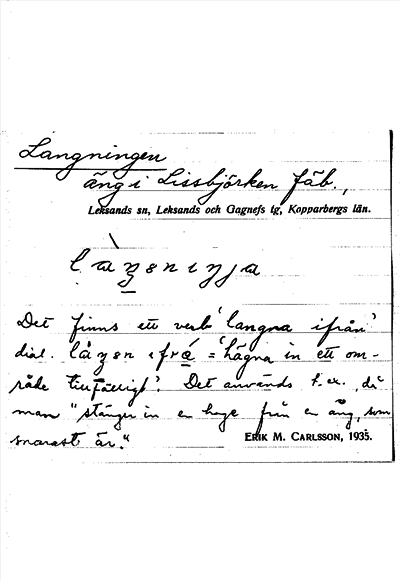 Langningen
äng i Lissbjörken fäb.,
Leksands sn, Leksands och Gagnefs tg, Kopparbergs län.
Det finns ett verb 'langna ifrån'
dial. = 'hägna in ett om-
råde tillfälligt'. Det användes t.ex., då
man "stänger in en hage från en äng, som
snarast är."
ERIK M. CARLSSON, 1935.